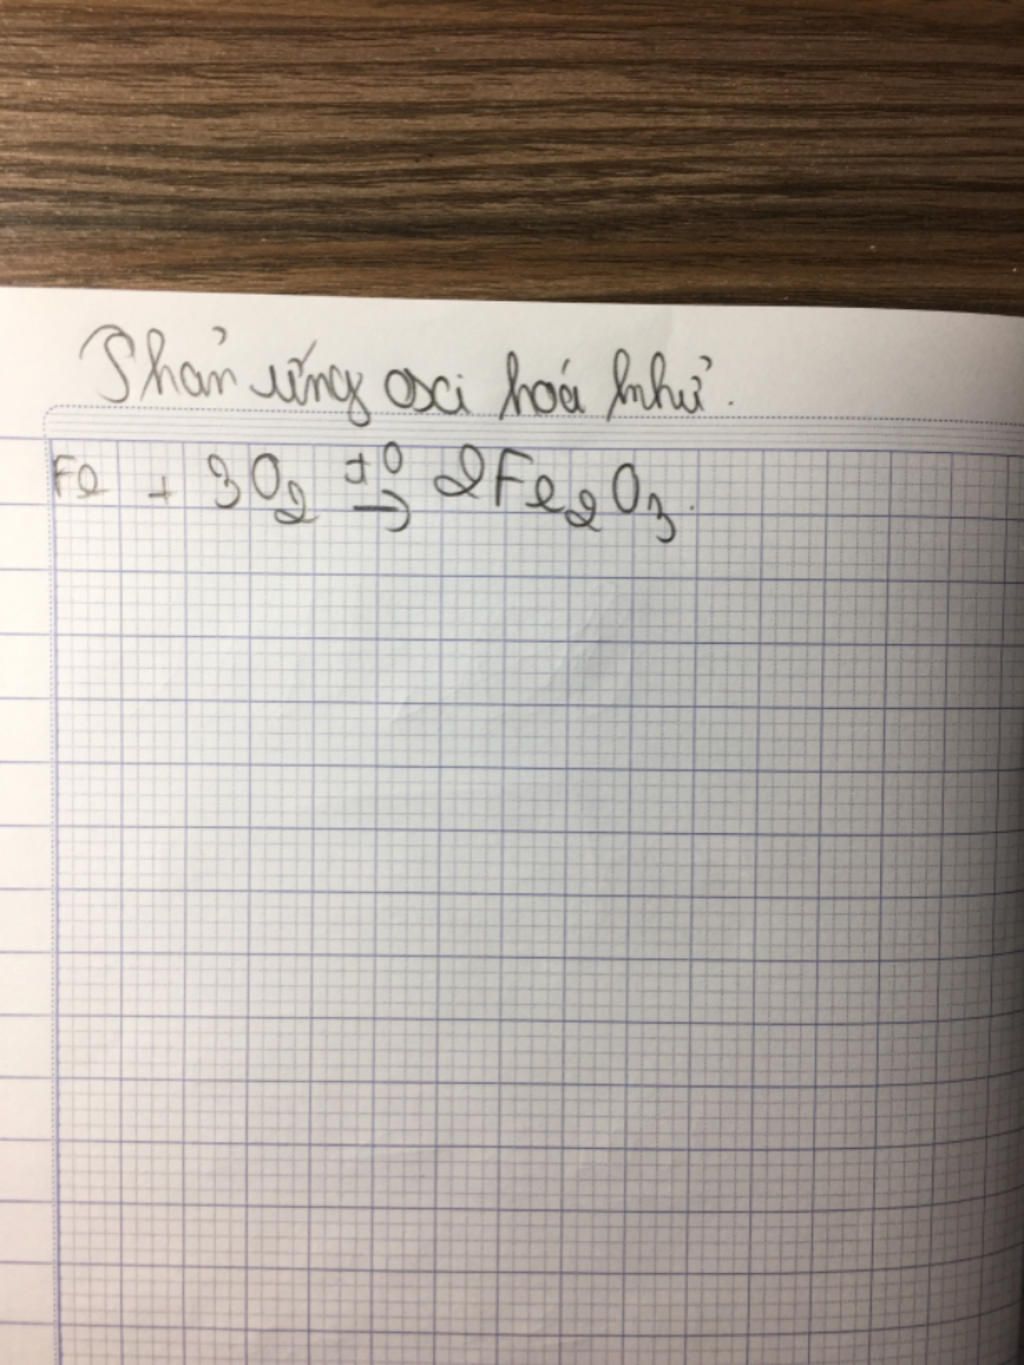 Phản ứng oxi hoá khử.
Fe + 3O₂ t⁰→ 2Fe₂O₃.